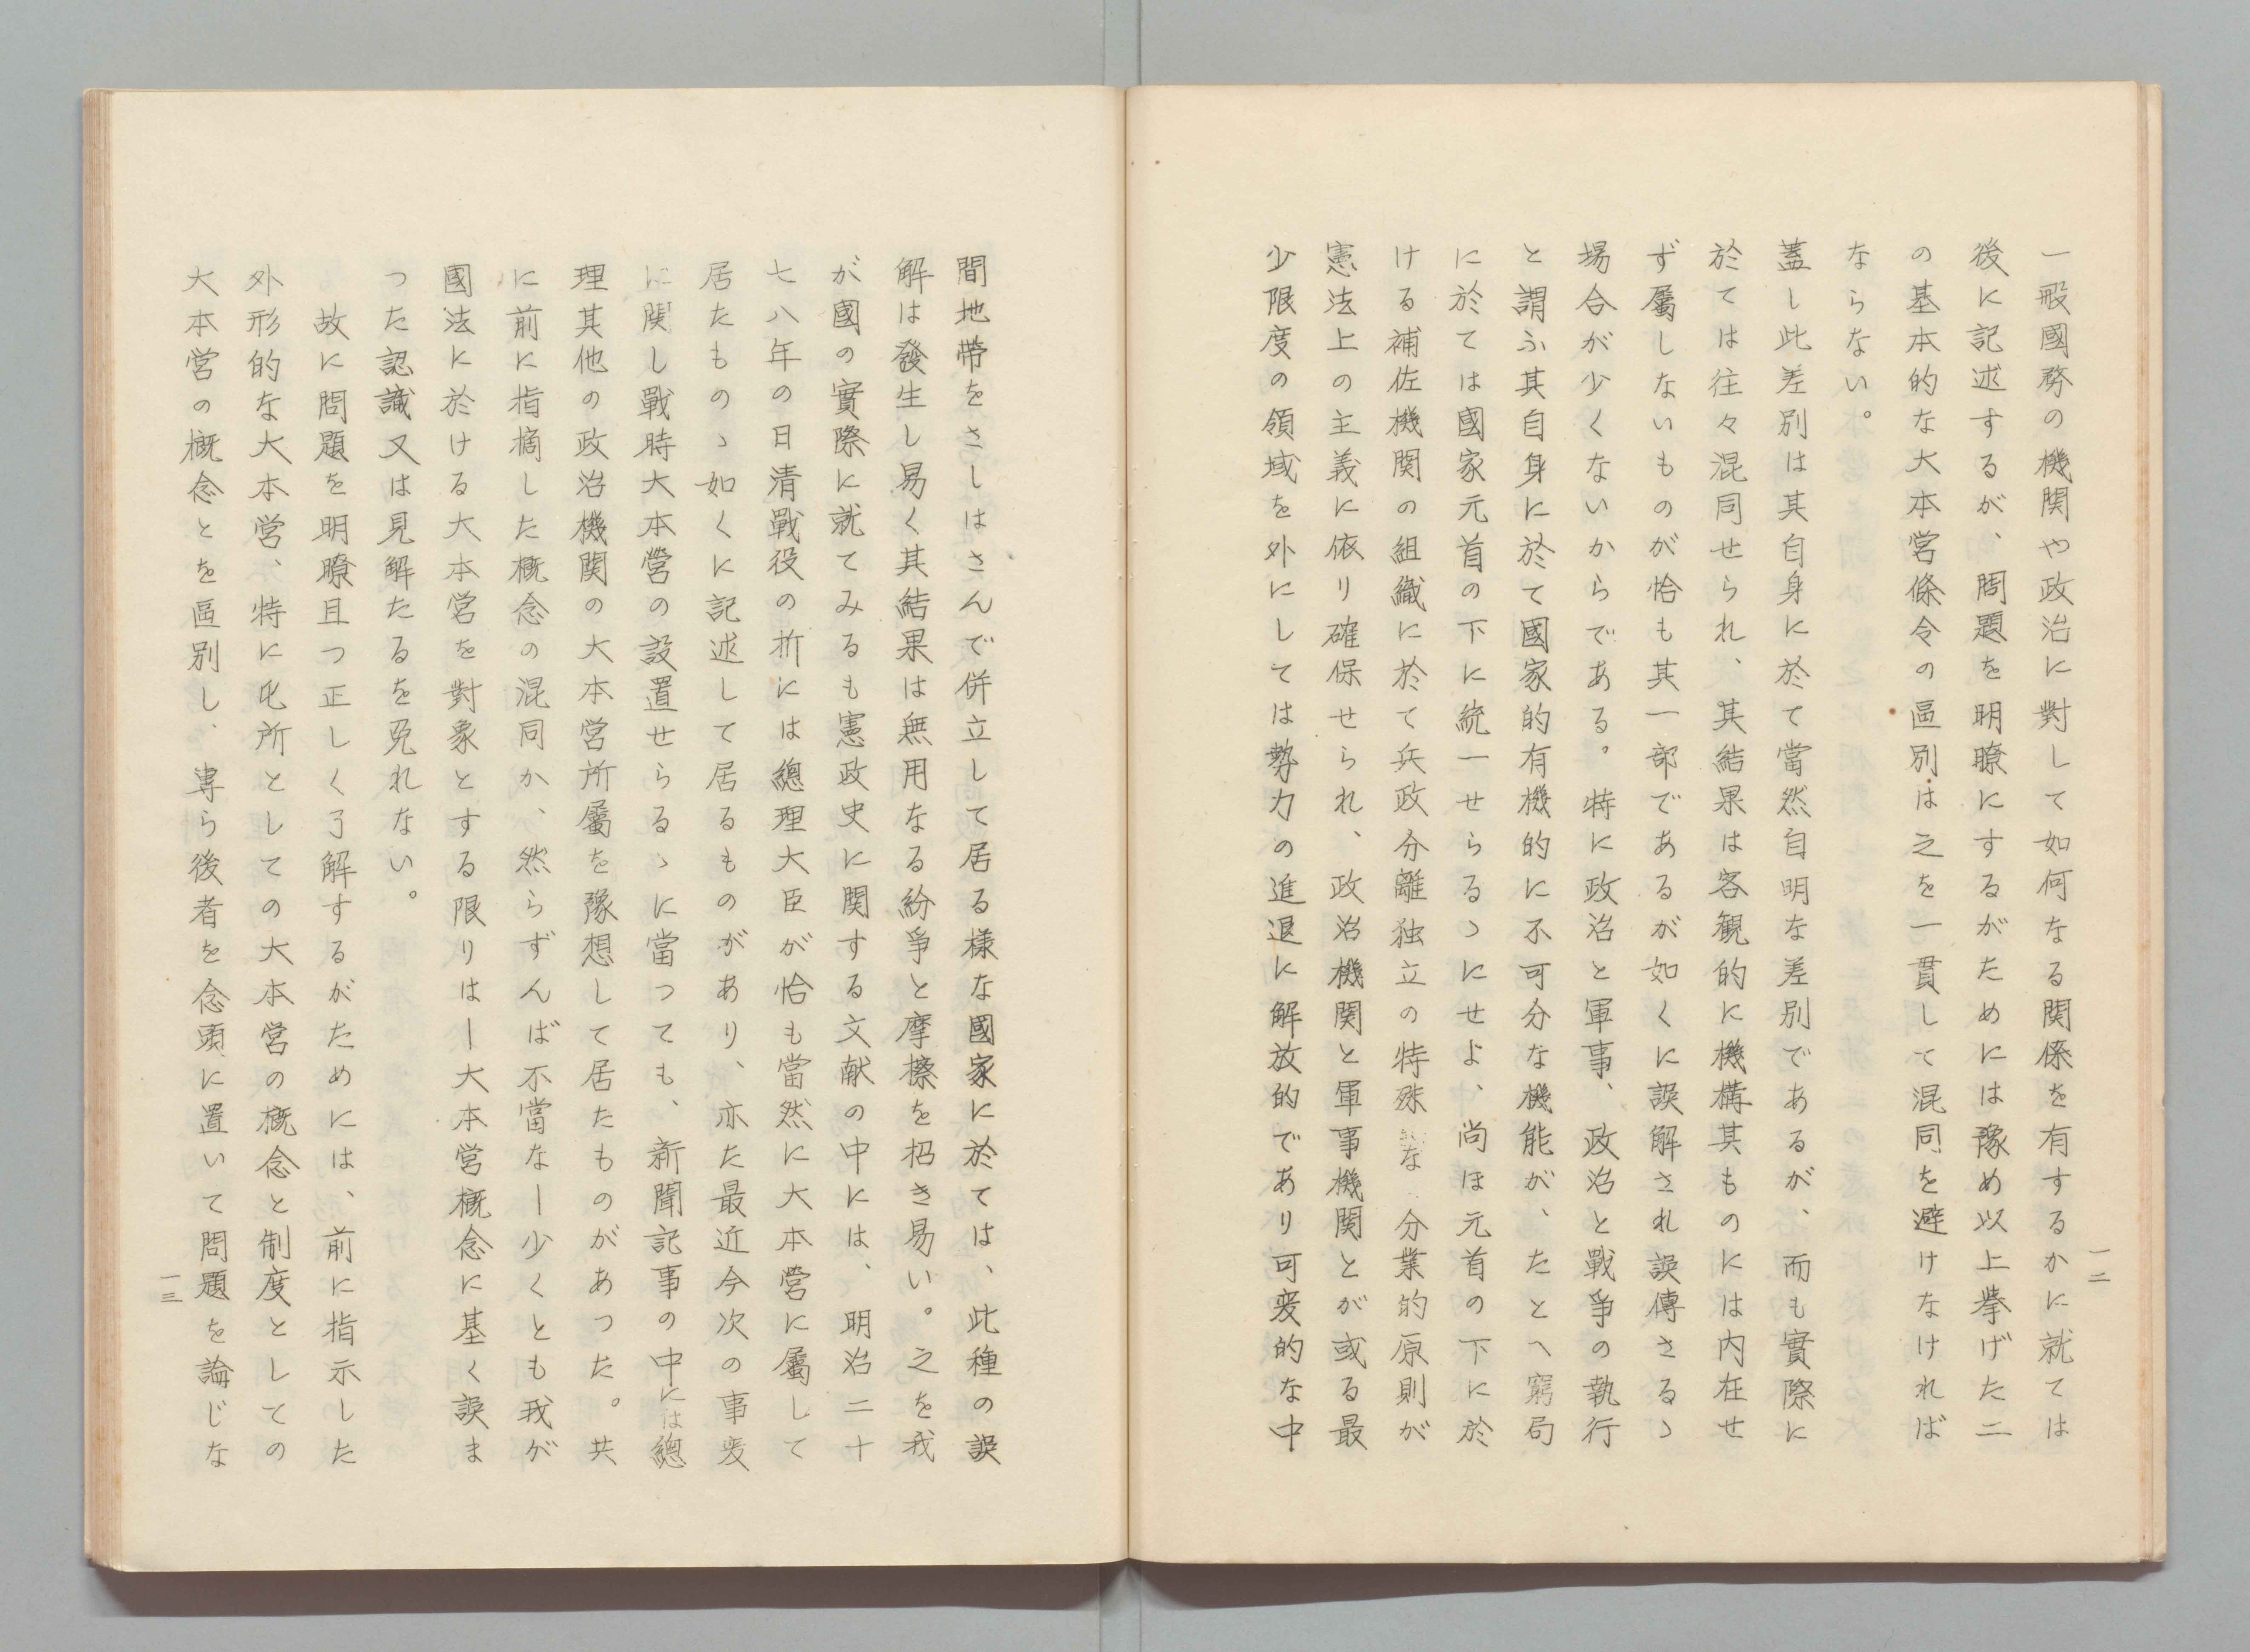 一般國務の機関や政治に對して如何なる関係を有するかに就ては
後に記述するが、問題を明瞭にするがためには豫め以上挙げた二
の基本的な大本営條令の區別は之を一貫して混同を避けなければ
ならない。
蓋し此差別は其自身に於て當然自明な差別であるが、而も實際に
於ては往々混同せられ、其結果は客観的に機構其ものには内在せ
ず屬しないものが恰も其一部であるが如くに誤解され誤傳さるゝ
場合が少くないからである。特に政治と軍事、政治と戰爭の執行
と謂ふ其自身に於て國家的有機的に不可分な機能が、たとへ窮局
に於ては國家元首の下に統一せらるゝにせよ、尚ほ元首の下に於
ける補佐機関の組織に於て兵政分離独立の特殊な分業的原則が
憲法上の主義に依り確保せられ、政治機関と軍事機関とが或る最
少限度の領域を外にしては勢力の進退に解放的であり可変的な中
一二
間地帶をさしはさんで併立して居る様な國家に於ては、此種の誤
解は發生し易く其結果は無用なる紛爭と摩擦を招き易い。之を我
が國の實際に就てみるも憲政史に関する文献の中には、明治二十
七八年の日清戰役の折には總理大臣が恰も當然に大本営に屬して
居たものゝ如くに記述して居るものがあり、亦た最近今次の事変
に関し戰時大本營の設置せらるゝに當つても、新聞記事の中には總
理其他の政治機関の大本営所屬を豫想して居たものがあつた。共
に前に指摘した概念の混同か、然らずんば不當なー少くとも我が
國法に於ける大本営を對象とする限りはー大本営概念に基く誤ま
つた認識又は見解たるを免れない。
故に問題を明瞭且つ正しく了解するがためには、前に指示した
外形的な大本営、特に屯所としての大本営の概念と制度としての
大本営の概念とを區別し、専ら後者を念頭に置いて問題を論じな
一三